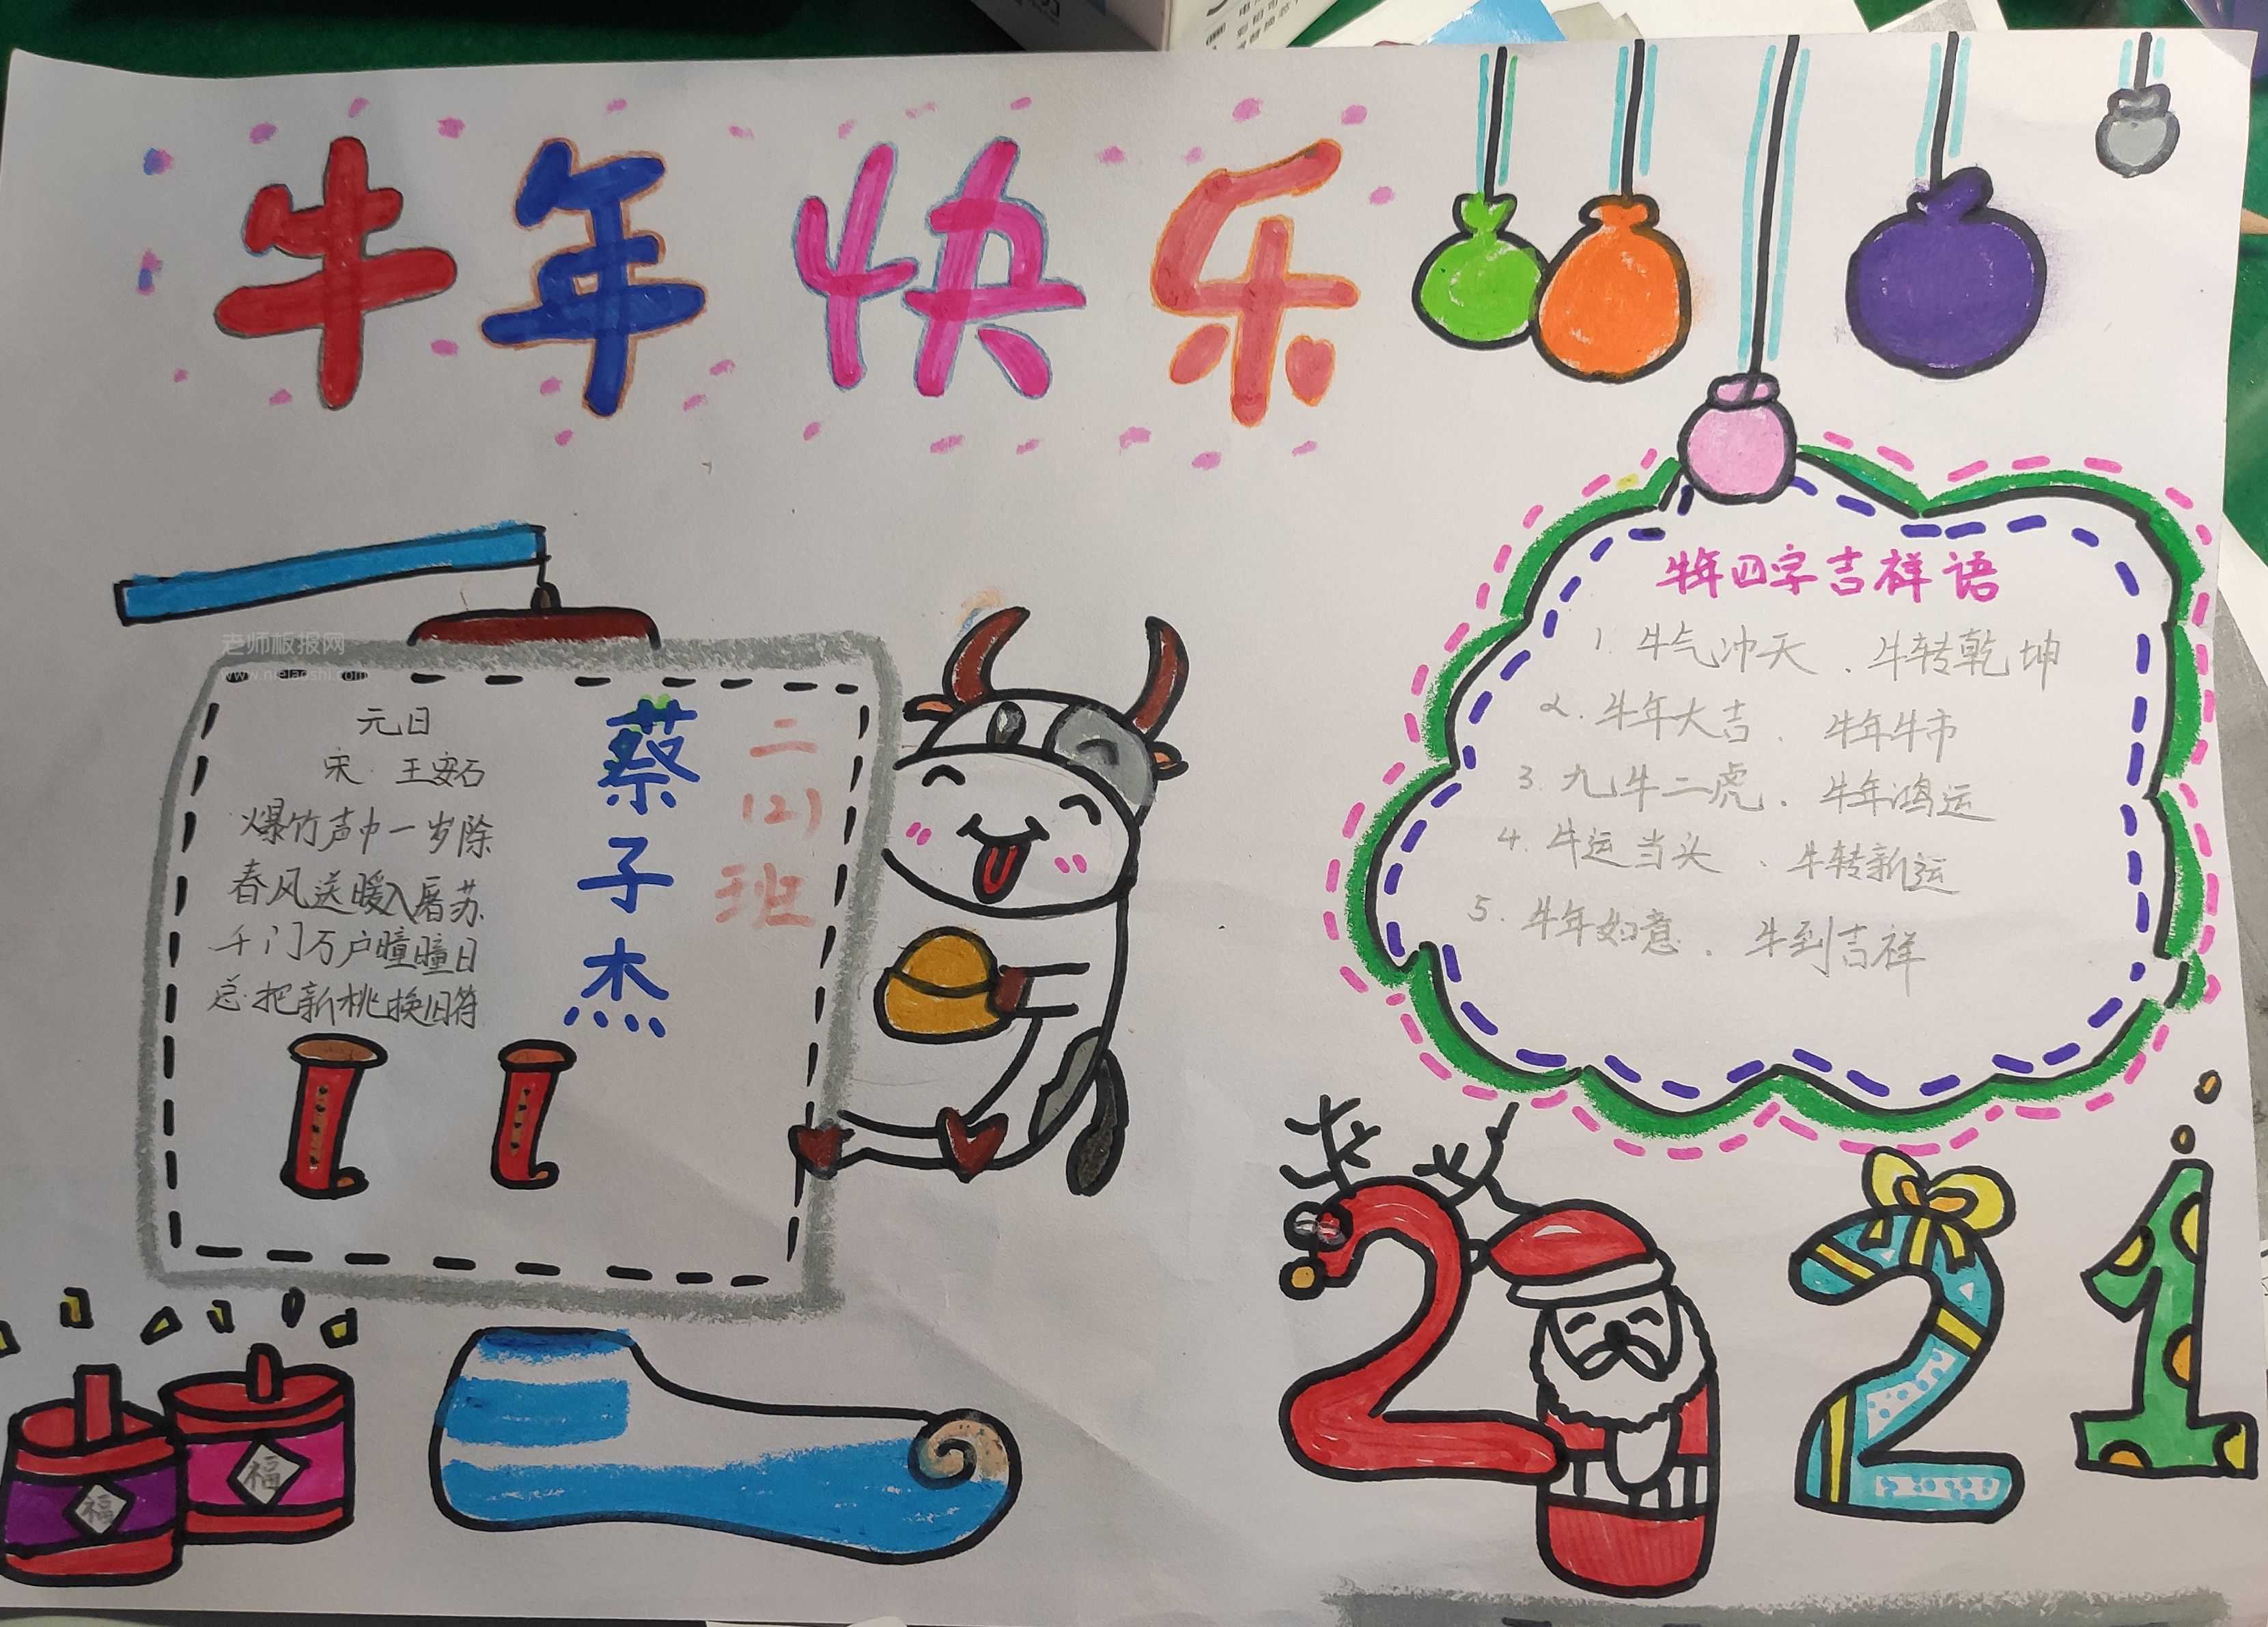 牛年快乐
老师板报网
www.njelaoshi.com
元日
宋 王安石
爆竹声中一岁除
春风送暖入屠苏
千门万户曈曈日
总把新桃换旧符
蔡子杰
二(2)班
牛年四字吉祥语
1. 牛气冲天、牛转乾坤
2. 牛年大吉、牛年牛市
3. 九牛二虎、牛年鸿运
4. 牛运当头、牛转新运
5. 牛年如意、牛到吉祥
福
福
2021